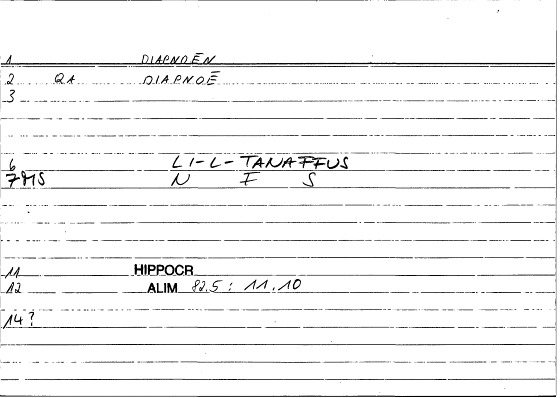 1 DIAPNOĒN
2 QA DIAPNOĒ
3
6 LI-L-TANAFFUS
7 MS N F S
11 HIPPOCR
12 ALIM 82.5 : 11.10
14?